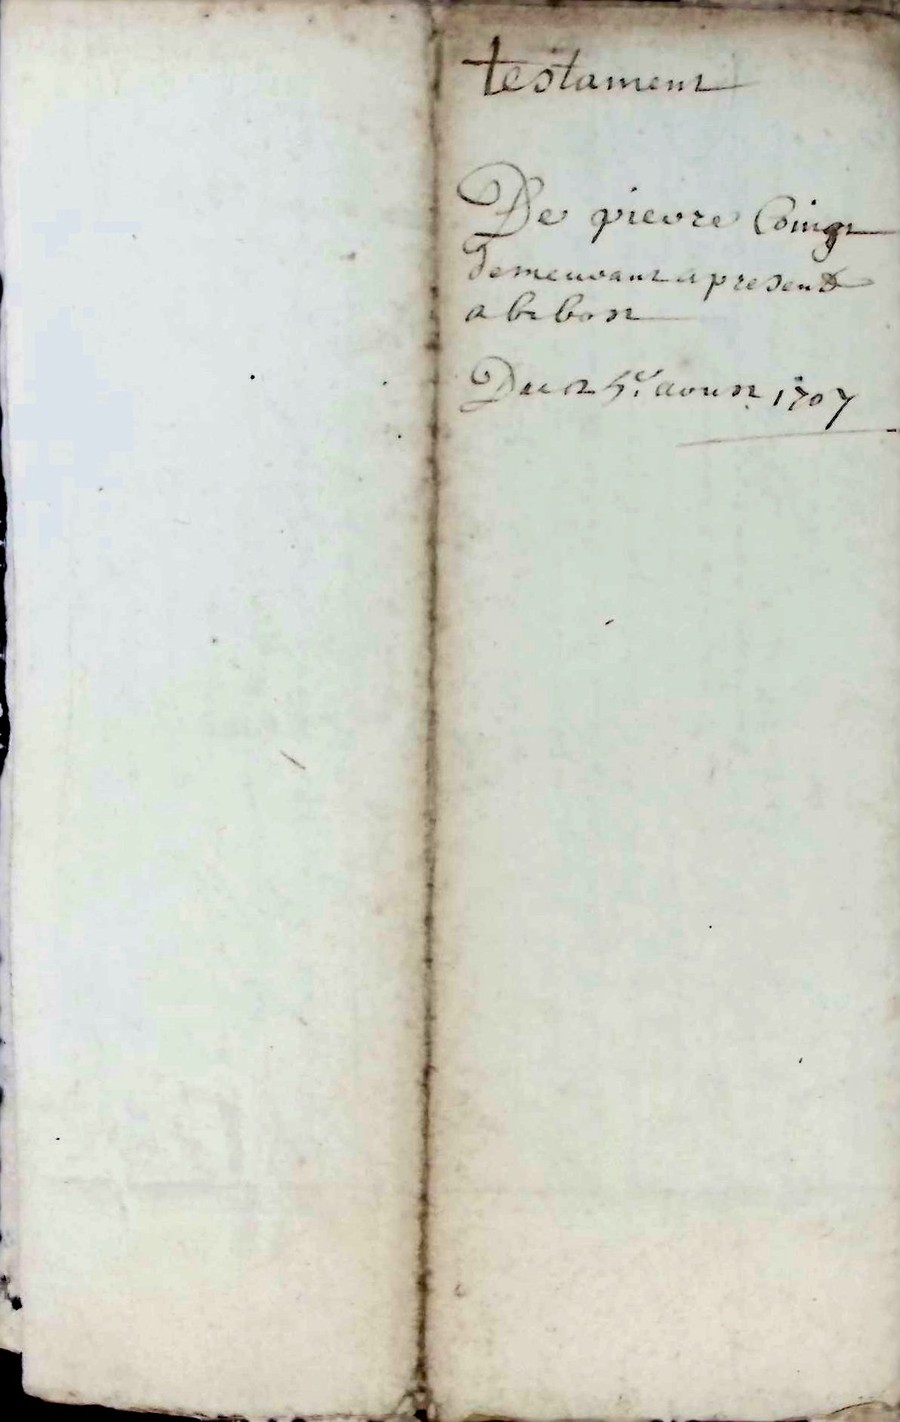 testament
De pierre Coingt
demeurant a present
a
Du aoust 1707